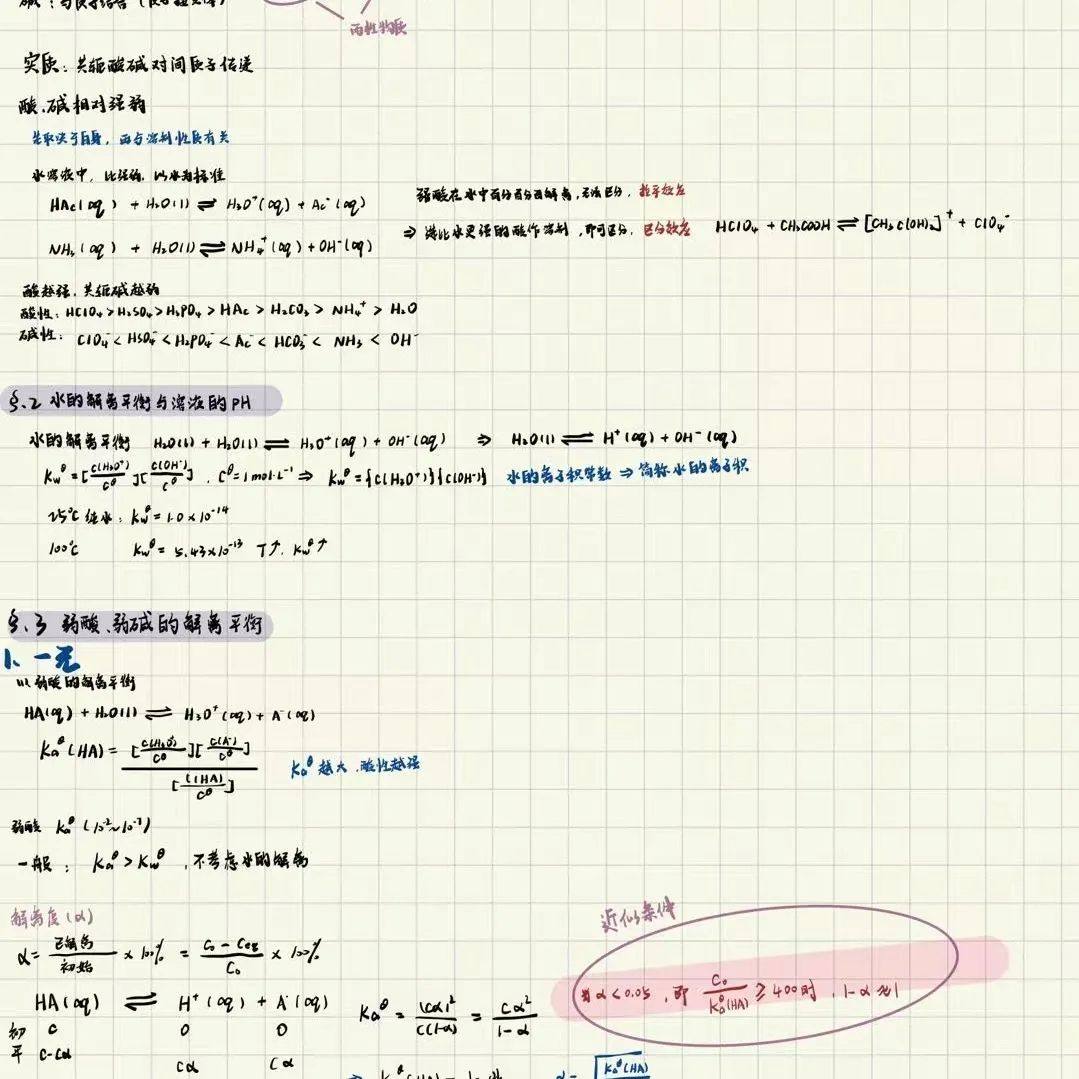 碱：与质子结合（质子接受体）
两性物质
实质：共轭酸碱对间质子传递
酸、碱相对强弱
先取决于自身，而与溶剂性质有关
水溶液中，比强弱，以水为标准
HAc(aq) + H₂O(l) ⇌ H₃O⁺(aq) + Ac⁻(aq)
NH₃(aq) + H₂O(l) ⇌ NH₄⁺(aq) + OH⁻(aq)
强酸在水中百分百分百解离，无法区分，拉平效应
⇒ 选比水更强的酸作溶剂，即可区分，区分效应 HClO₄ + CH₃COOH ⇌ [CH₃C(OH)₂]⁺ + ClO₄⁻
酸越强，共轭碱越弱
酸性：HClO₄ > H₂SO₄ > H₃PO₄ > HAc > H₂CO₃ > NH₄⁺ > H₂O
碱性：ClO₄⁻ < HSO₄⁻ < H₂PO₄⁻ < Ac⁻ < HCO₃⁻ < NH₃ < OH⁻
§.2 水的解离平衡与溶液的PH
水的解离平衡 H₂O(l) + H₂O(l) ⇌ H₃O⁺(aq) + OH⁻(aq) ⇒ H₂O(l) ⇌ H⁺(aq) + OH⁻(aq)
Kw^θ = [c(H₃O⁺)/c^θ][c(OH⁻)/c^θ] , c^θ = 1 mol·L⁻¹ ⇒ Kw^θ = {c(H₃O⁺)}{c(OH⁻)} 水的离子积常数 ⇒ 简称水的离子积
25℃ 纯水：Kw^θ = 1.0×10⁻¹⁴
100℃ Kw^θ = 5.43×10⁻¹³ T↑, Kw^θ↑
§.3 弱酸、弱碱的解离平衡
1、一元
(1) 弱酸的解离平衡
HA(aq) + H₂O(l) ⇌ H₃O⁺(aq) + A⁻(aq)
Ka^θ(HA) = [c(H₃O⁺)/c^θ][c(A⁻)/c^θ] / [c(HA)/c^θ]
Ka^θ越大，酸性越强
弱酸 Ka^θ (10⁻²~10⁻⁷)
一般：Ka^θ > Kw^θ，不考虑水的解离
解离度(α)
α = 已解离/初始 × 100% = (c₀ - ceq)/c₀ × 100%
近似条件
当α<0.05，即 c₀/Ka^θ(HA) ≥ 400时，1-α≈1
HA(aq) ⇌ H⁺(aq) + A⁻(aq)
初 c 0 0
平 c-cα cα cα
Ka^θ = (cα)²/c(1-α) = cα²/1-α